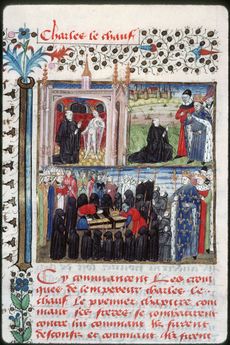 Charles le chauf
Cy commancent les croni
ques de lempereur charles le
chauf Le premier chapitre com
mant ses freres se combatirent
contre lui comment ilz furent
desconfis et comment ilz furent